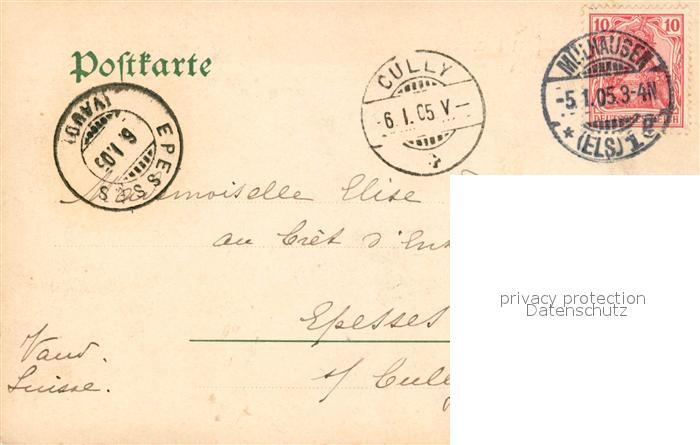 Postkarte
10 10
DEUTSCHES REICH
MÜLHAUSEN
-5.1.05.3-4N
*(ELS)1
CULLY
-6.I.05 V-
EPESSES
6.I.05
(VAUD)
Mademoiselle Elise
au Crêt d'
Epesses
s/ Cully
Vaud.
Suisse.
privacy protection
Datenschutz